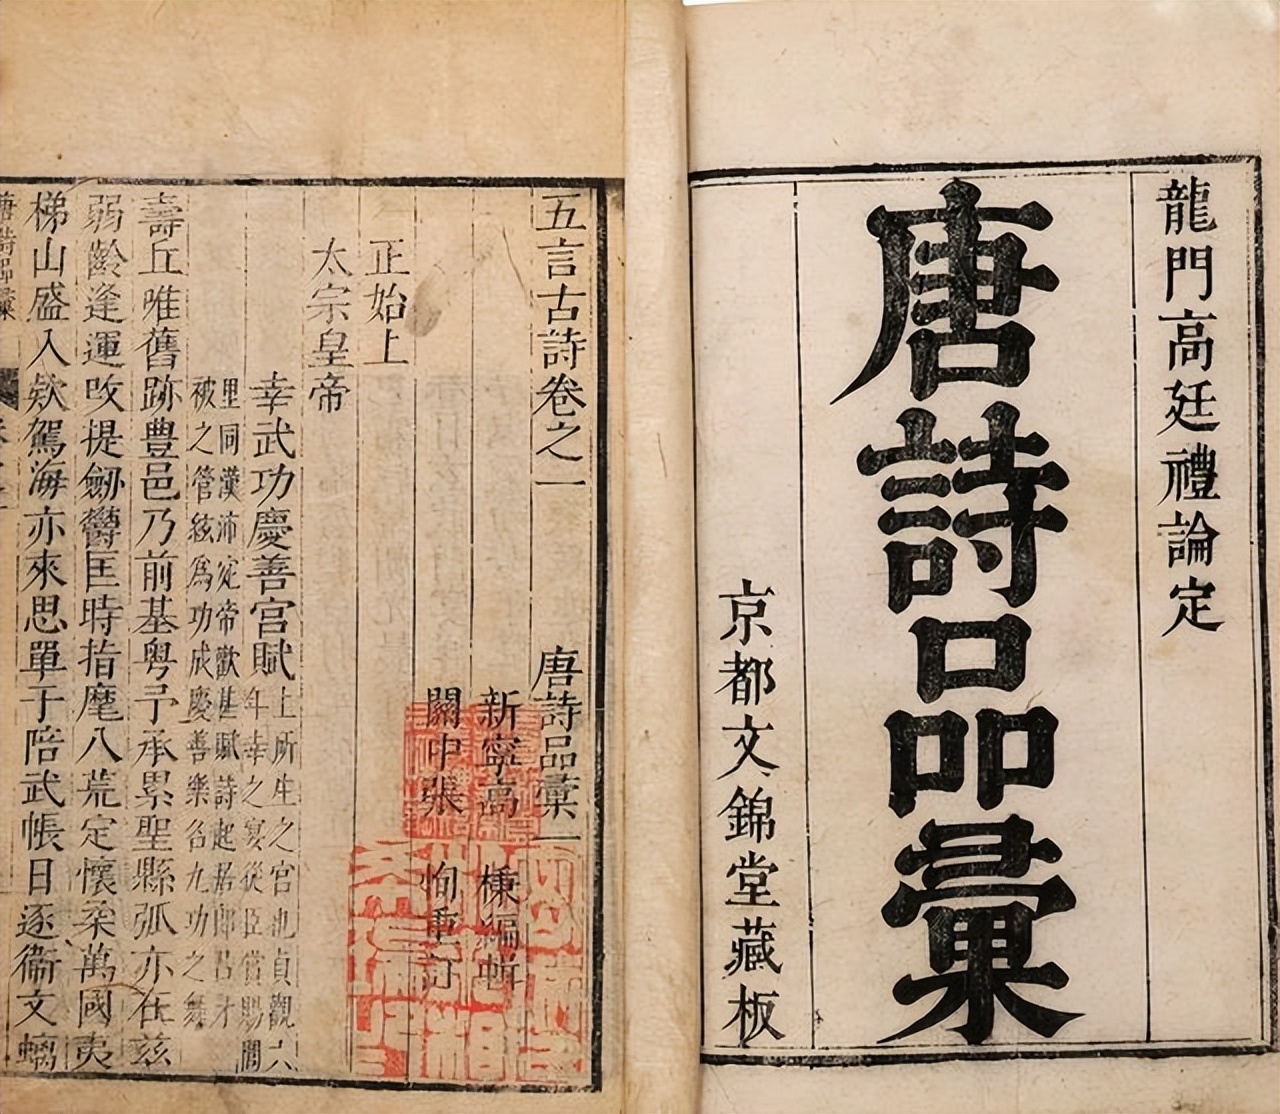 龍門高廷禮論定
唐詩品彙
京都文錦堂藏板
五言古詩卷之一
唐詩品彙一
新寧高
棅編輯
關中張
恂重訂
正始上
太宗皇帝
幸武功慶善宮賦
上所生之宮也貞觀六
年幸之宴從臣賞賜閭
里同漢沛宛帝歡甚賦詩起居郎呂才
被之管絃爲功成慶善樂名九功之舞
壽丘唯舊跡豊邑乃前基粤予承累聖縣弧亦在茲
弱齡逢運改提劒鬱匡時指麾八荒定懷柔萬國夷
梯山盛入欵駕海亦來思單于陪武帳日逐衞文㮰